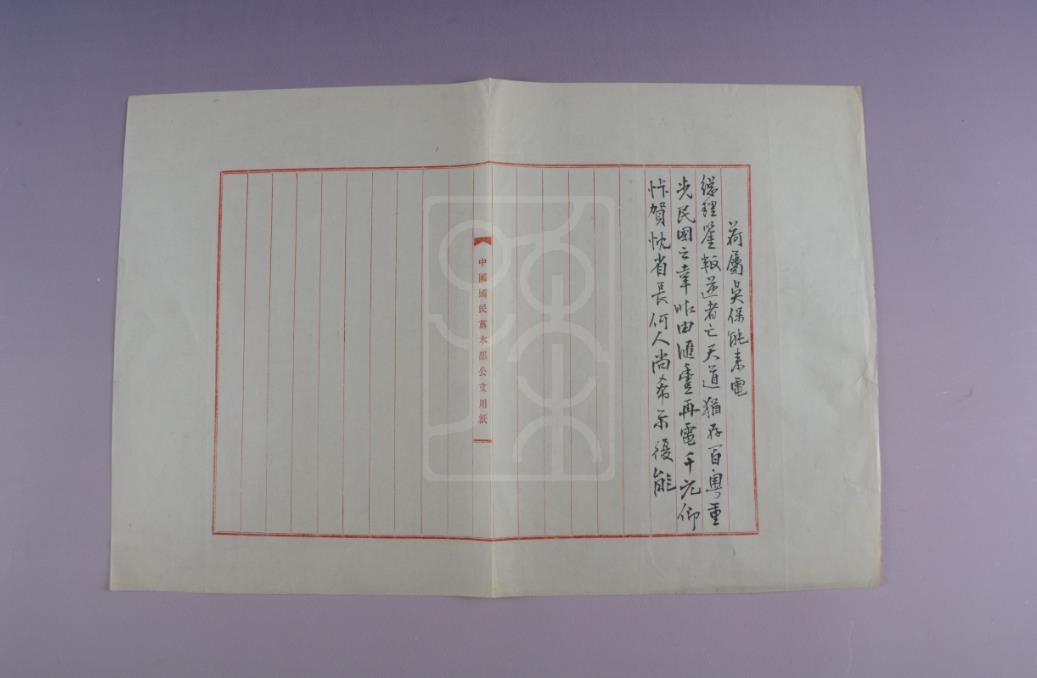 荷屬吳保能來電
總理鑒叛逆者亡天道猶存百粵重
光民國之幸昨由滙壹再電千元仰
忭賀忱省長何人尚希示復能
中國國民黨本部公文用紙